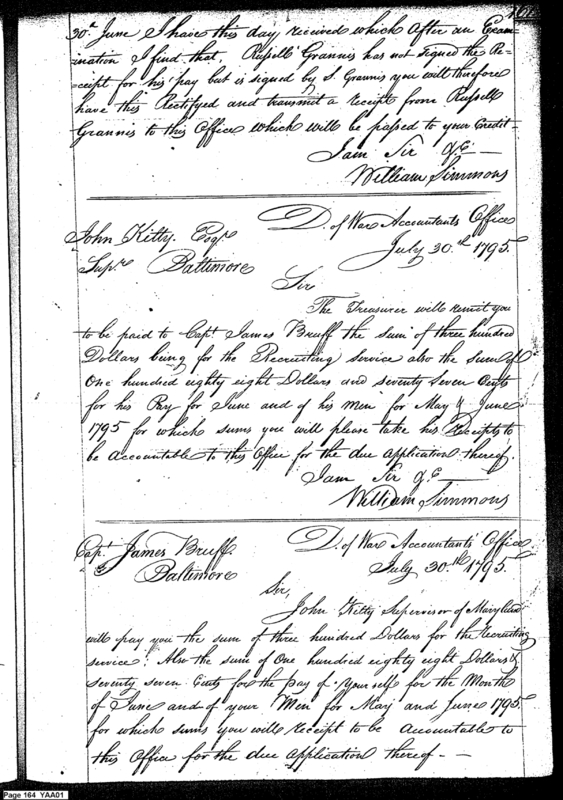 30th June I have this day received which after an Exam-
ination I find that, Russell Grannis has not signed the Re-
ceipt for his pay but is signed by S. Grannis you will therefore
have this Rectifyed and transmit a receipt from Russell
Grannis to this Office which will be passed to your Credit-
I am Sir &c —
William Simmons
D. of War Accountants Office
July 30th 1795
John Kitty. Esqr.
Supr. Baltimore
Sir
The Treasurer will remit you
to be paid to Capt. James Bruff the sum of three hundred
Dollars being for the Recruiting service also the sum of
One hundred eighty eight Dollars and seventy seven Cents
for his Pay for June and of his Men for May & June
1795 for which sums you will please take his Receipts to
be Accountable to this Office for the due application thereof.
I am Sir &c —
William Simmons
D. of War Accountants' Office
July 30th 1795.
Capt. James Bruff
Baltimore
Sir,
John Kitty Supervisor of Maryland
will pay you the sum of three hundred Dollars for the Recruiting
service. Also the sum of One hundred eighty eight Dollars &
seventy seven Cents for the pay of Yourself for the Month
of June and of your Men for May and June 1795
for which sums you will receipt to be Accountable to
this Office for the due Application thereof. —
Page 164 YAA01